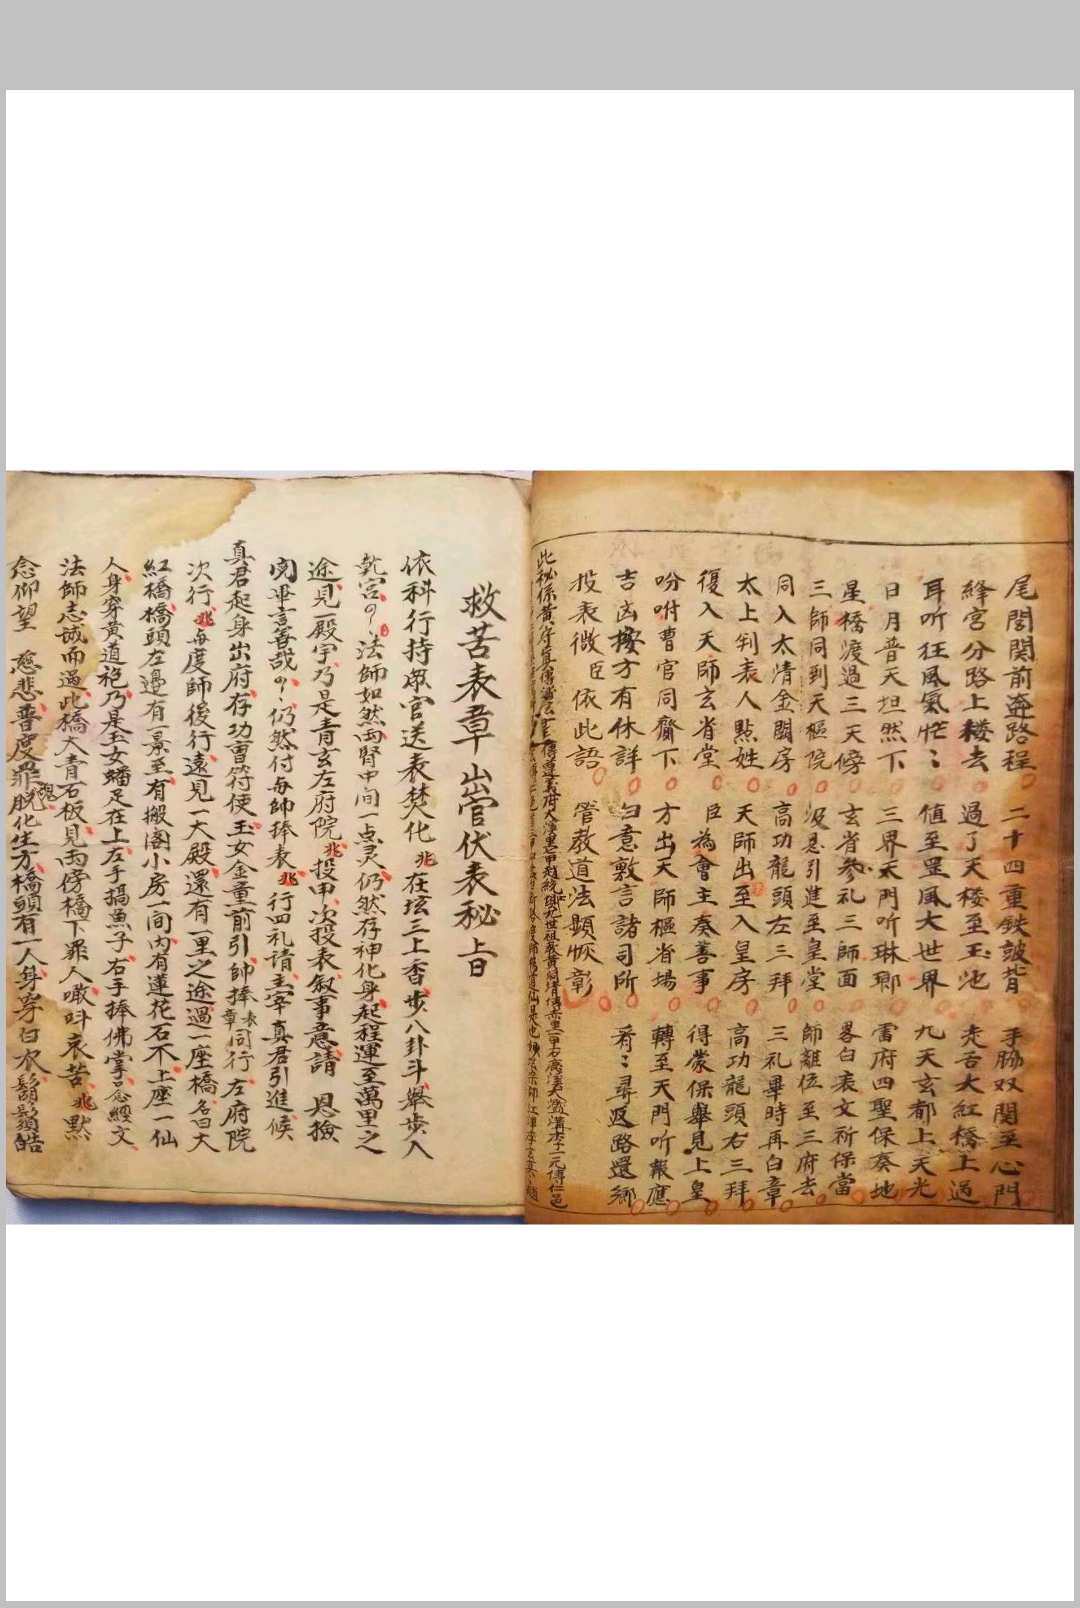 尾閭關前奔路程 二十四重鉄皷背 手脇双関至心門
絳宮分路上楼去 過了天楼至玉池 先舌大紅橋上過
耳听狂風氣茫〻 值至罡風大世界 九天玄都上天光
日月普天坦然下 三界天門听琳瑯 雷府四聖保奏地
星橋渡過三天傍 玄省参礼三師面 畧白衷文祈保當
三師同到天樞院 引進至皇堂 師離位至三府去
同入太清金闕房 高功龍頭左三拜 三礼畢時再白章
太上判表人點姓 天師出至入皇房 高功龍頭右三拜
復入天師玄省堂 臣為會主奏善事 得蒙保舉見上皇
吩咐曹官同齎下 方出天師樞省場 轉至天門听報應
吉凶按方有休詳 白意敷言諸司所 看〻尋返路還鄉
投表微臣依此語 管教道法顯恢彰
此秘係黄
救苦表章出官伏表秘上旨
依科行持眾官送表焚化兆在垓三上香步八卦斗舉步入
乾宮 法師如然両腎中间一点灵仍然存神化身起程運至萬里之
途見一殿宇乃是青玄左府院兆投甲次投表叙事意請 恩撿
閲畢言善哉 仍然付与帥捧表兆行四礼请主宰真君引進候
真君起身出府存功曹符使玉女金童前引帥捧表章同行左府院
次行兆与度師後行遠見一大殿還有一里之途過一座橋名曰大
紅橋橋頭左邊有一景至有搬阁小房一間内有蓮花石不上座一仙
人身穿黄道袍乃是玉女蟠足在上左手搞魚子右手捧佛掌口念經文
法師志誠而過此橋大青石板見両傍橋下罪人噉呌哀苦兆默
念仰望 慈悲普度罪魂脫化生方橋頭有一人身穿白衣鬍鬚皓